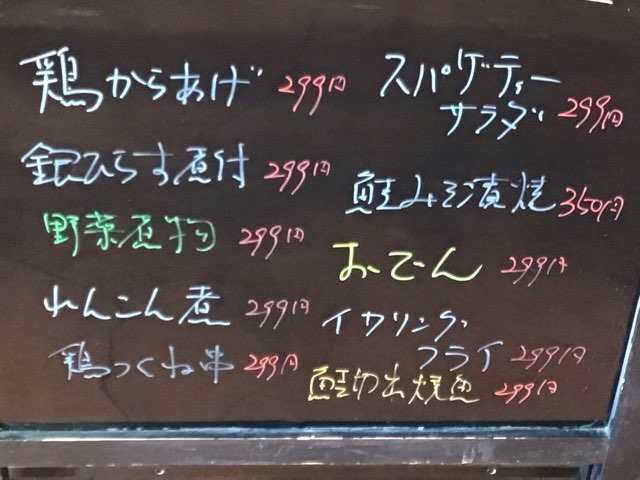 鶏からあげ 299円
銀ひらす煮付 299円
野菜煮物 299円
れんこん煮 299円
鶏つくね串 299円
スパゲティー
サラダ 299円
鮭みそ漬焼 350円
おでん 299円
イカリング
フライ 299円
鮭切出焼魚 299円